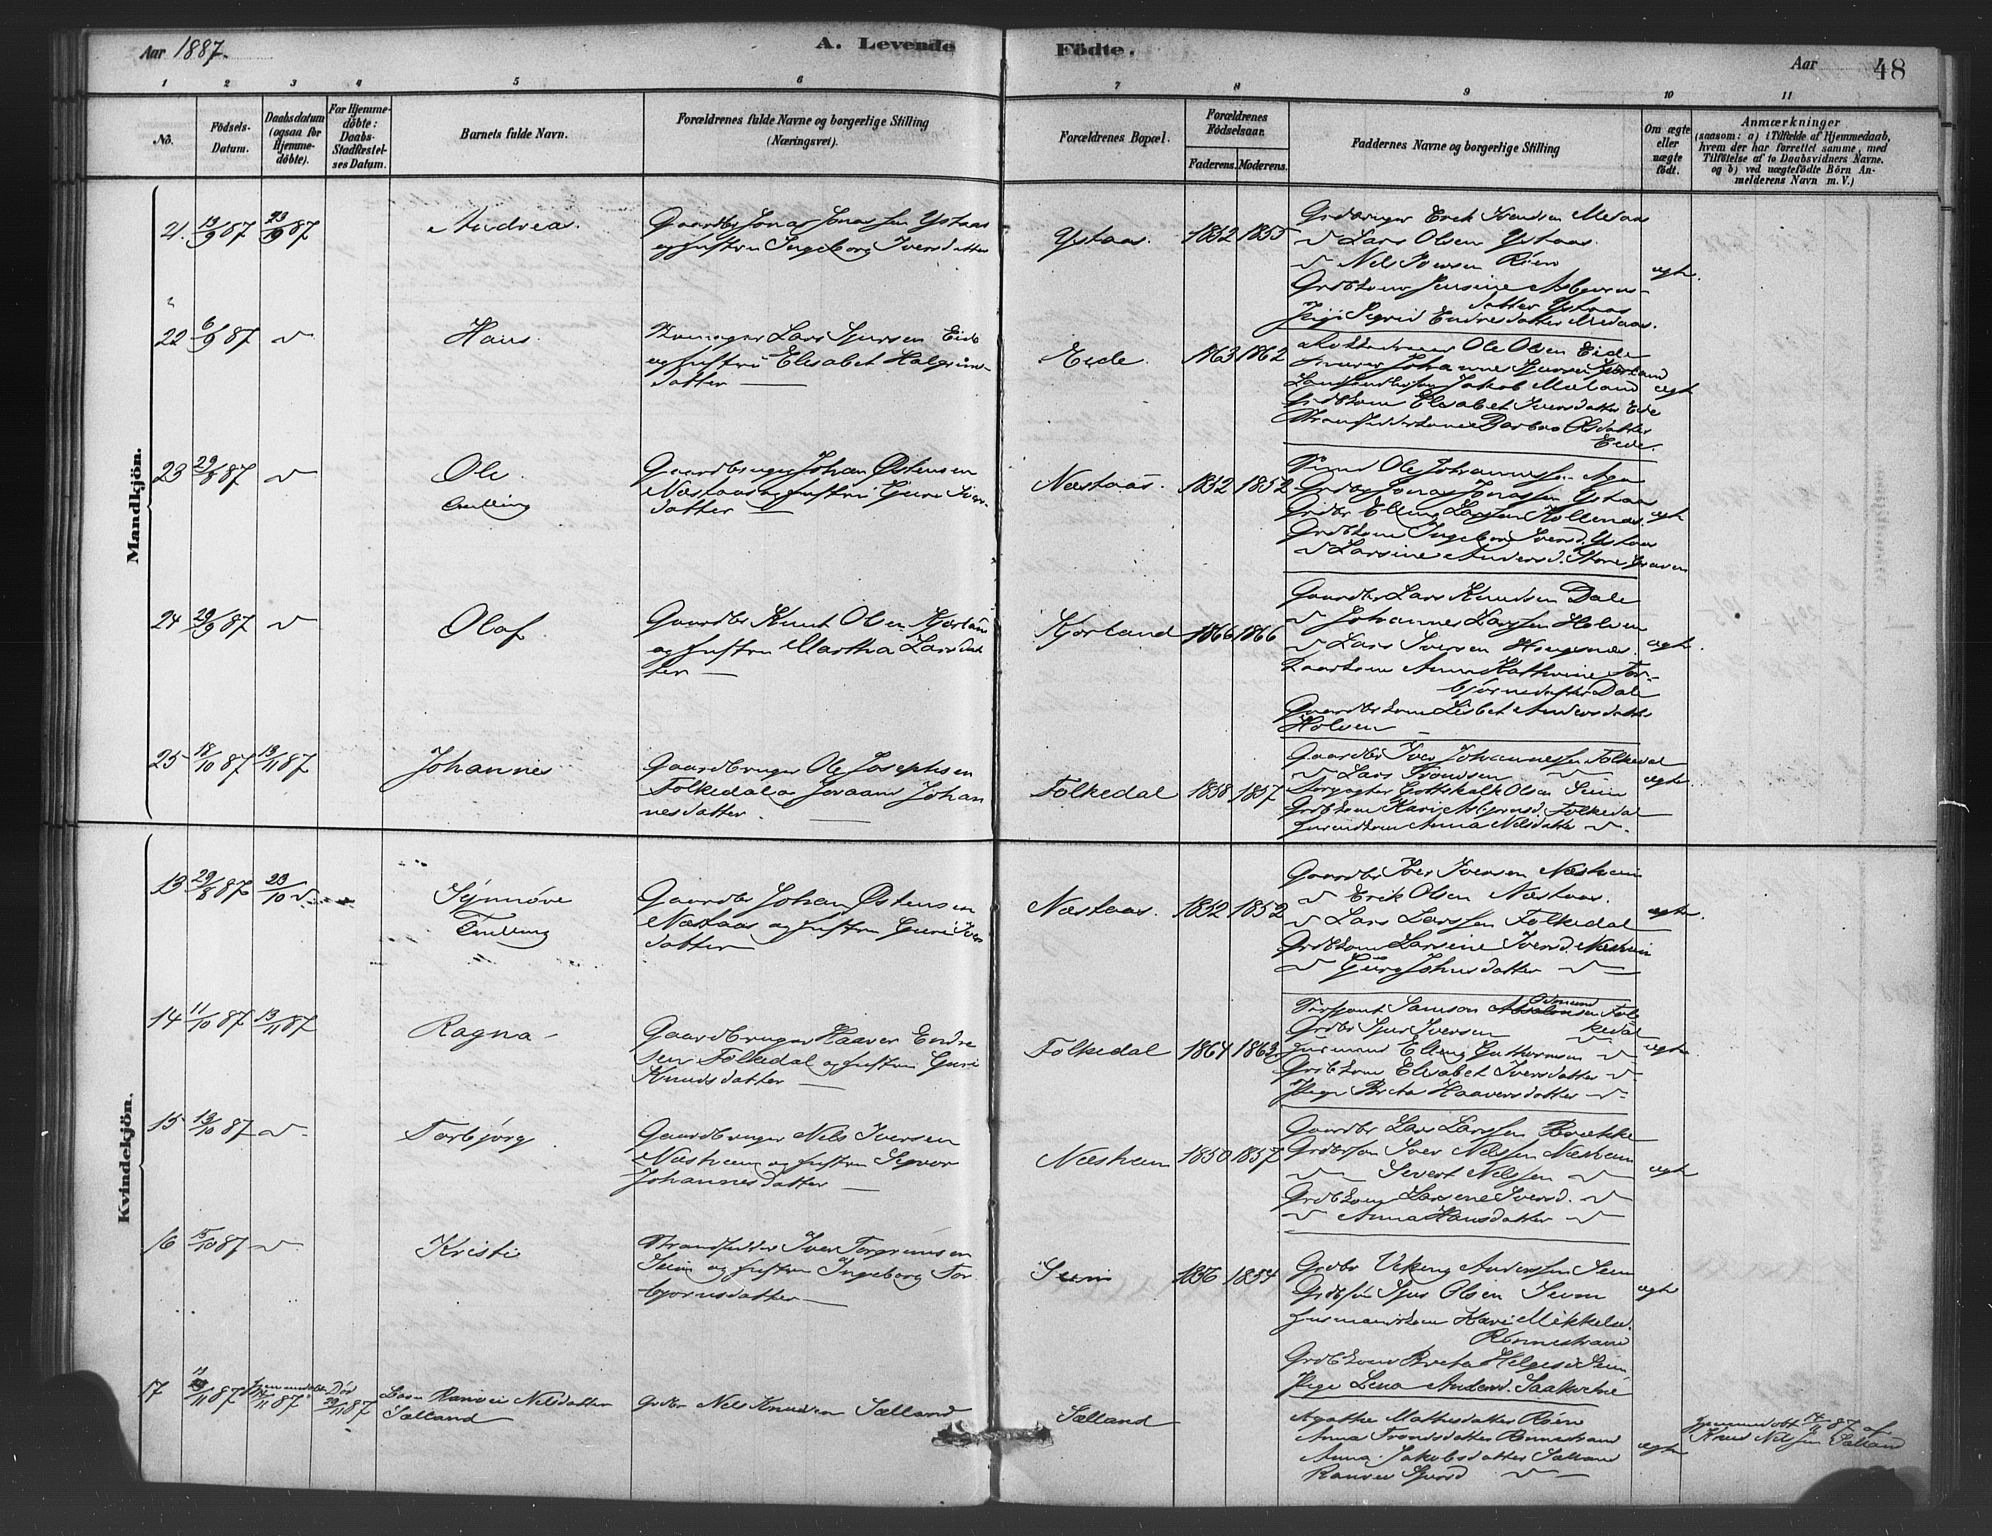 Aar 1887.
A. Levende Födte.
Aar
48
1 2 3 4 5 6 7 8 9 10 11
No.
Födsels-Datum.
Daabsdatum (ogsaa for Hjemme-döbte).
For Hjemme-döbte: Daabs-Stadfæstel-ses Datum.
Barnets fulde Navn.
Forældrenes fulde Navne og borgerlige Stilling
(Næringsvei).
Forældrenes Bopæl.
Forældrenes Födselsaar.
Faderens. Moderens.
Faddernes Navne og borgerlige Stilling
Om ægte eller uægte födt.
Anmærkninger
(saasom: a) i Tilfælde af Hjemmedaab,
hvem der har forrettet samme, med
Tilföielse af to Daabsvidners Navne.
og b) ved uægtefödte Börn An-
melderens Navn m. V.)
Mandkjön.
21. 13/9 87 23/9 87
Andreas.
Gaardbr Jonas Jonassen Ystaas
og hustru Ingeborg Iversdatter
Ystaas.
1852 1855
Lars Olsen Ystaas
Nels Iversen Röen
Pige Sigrid Endresdatter Medaas.
ægte.
22 6/9 87
Hans.
Lars Sjursen Eide
og hustru Elisabet Halgrims-
datter
Eide.
1863 1862
Ole Olsen Eide
Jakob Mæland
Grdbkone Elisabet Iversdatter Eide
Barbro Olsdatter
Eide.
ægte
23 29/8 87
Ole.
Tvilling
Gaardbruger Johan Østensen
Næstaas og hustru Guri Ivers-
datter
Næstaas.
1852 1852
Ole Johannessen Aga
Grdbr Jonas Jonassen Ystaas
Grdbr Elling Larssen Kollenæs.
Grdbkone Ingeborg Iversd. Ystaas
Larsine Andersd. Store Graven
ægte
24 29/9 87
Olaf.
Gaardbr Knut Olsen Kjerland
og hustru Martha Larsdat-
ter
Kjerland
1866 1866
Gaardbr Lars Knudsen Dale
Johannes Larssen Holven
Lars Iversen
Anna Kathrine Tor-
bjørnsdatter Dale
Gaardbrkone Lisbet Andersdatter
Holven
ægte.
25 18/10 87 13/11 87
Johannes
Gaardbruger Ole Josephsen
Folkedal og Joraand Johan-
nesdatter.
Folkedal
1858 1857
Gaardbr Iver Johannessen Folkedal
Lars Trondsen
Gottskalk Olsen Seim
Grdbkone Kari Asbjørnsd. Folkedal
Anna Nelsdatter
ægte.
Kvindekjön.
13 29/8 87 23/10
Synnøve
Tvilling
Gaardbr Johan Østensen
Næstaas og hustru Guri Ivers
datter
Næstaas.
1852 1852
Gaardbr Iver Iversen Næsheim
Erik Olsen Næstaas.
Lars Larssen Folkedal
Grdbkone Larsine Iversd. Næsheim
Guro Johnsdatter
ægte.
14 11/10 87 13/11 87
Ragna
Gaardbruger Haaver Endre
sen Folkedal og hustru Guri
Knudsdatter
Folkedal
1864 1863
Samson Odmund Absalonsen Fol-
kedal
Grdbr Sjur Iversen
Husmand Elling Guttormsen
Grdbkone Elisabet Iversdatter
Pige Brita Haaversdatter
ægte
15 19/10 87
Torbjørg.
Gaardbruger Nels Iversen
Næsheim og hustru Sygvor
Johannesdatter
Næsheim
1850 1857
Gaardbr Lars Larssen Brække
Grdbrsøn Iver Nelssen Næsheim
Sivert Nelssen
Grdbkone Larsine Iversd.
Anna Hansdatter
ægte
16 15/10 87
Kristi
Strandsidder Iver Torgrimsen
Seim og hustru Ingeborg Tor
bjørnsdatter
Seim
1856 1854
Grdbr Viking Anderssen Seim
Grdbsøn Sjur Olsen Seim
Husmandskone Kari Mikkelsd.
Rönnestrand
Grdbkone Brita Helgesd Seim
Pige Lena Andersd. Saakvitne
ægte
17 11/11 87 Hjemmedøbt 87 Död 87
Ranvei Nelsdatter
Sælland
Grdbr Nels Knudsen Sælland
Sælland
Agathe Mathisdatter Röen
Anna Trondsdatter Rönnestrand
Anna Jakobsdatter Sælland
Ranvei Sjursd
ægte
Hjemmedøbt 14/11 87 af
Knud Nelssen Sælland